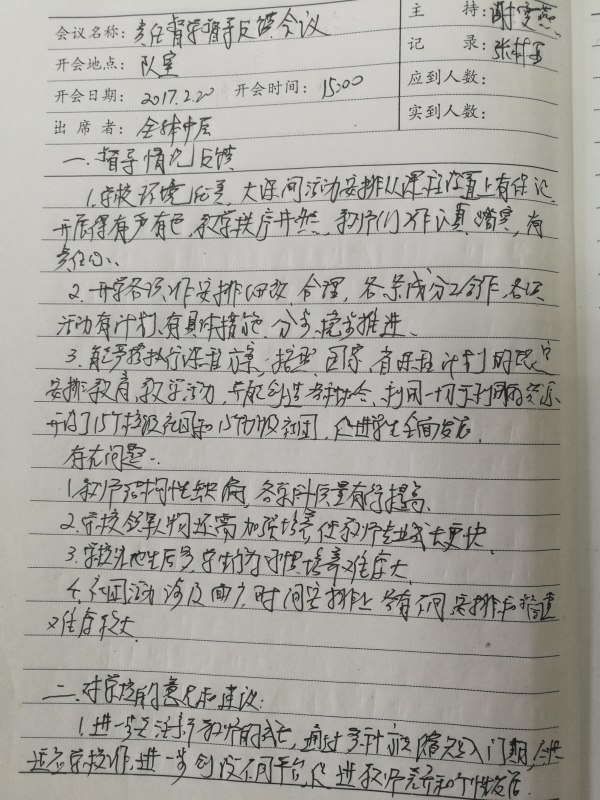 会议名称：责任督学督导反馈会议
主 持：谢
开会地点：队室
记 录：张
开会日期：2017.2.20 开会时间：15:00
应到人数：
出席者：全体中层
实到人数：
一、督导情况反馈
1.学校环境优美，大课间活动安排从课程设置上有保证，
开展得有声有色，教学秩序井然，教师们工作认真、踏实，有
责任心。
2.开学各项工作安排细致、合理，各条线分工合作，各项
活动有计划、有具体措施，分步、稳步推进。
3.能严格执行课程方案，按照国家有课程计划的规定
安排教育、教学活动，并能创造条件，利用一切可利用的资源
开设了15个校级社团和15个班级社团，促进学生全面发展。
存在问题：
1.教师结构性缺编，各学科质量有待提高。
2.学校领军人物还需加强培养，使教师专业成长更快。
3.学校外地生居多，学生行为习惯培养难度大。
4.社团活动涉及面广，时间安排上各有不同，安排和管理
难度较大。
二、对学校的意见和建议：
1.进一步关注新教师的成长，通过多种方式缩短入门期，
适应学校工作，进一步创设不同平台，促进教师差异和个性发展。